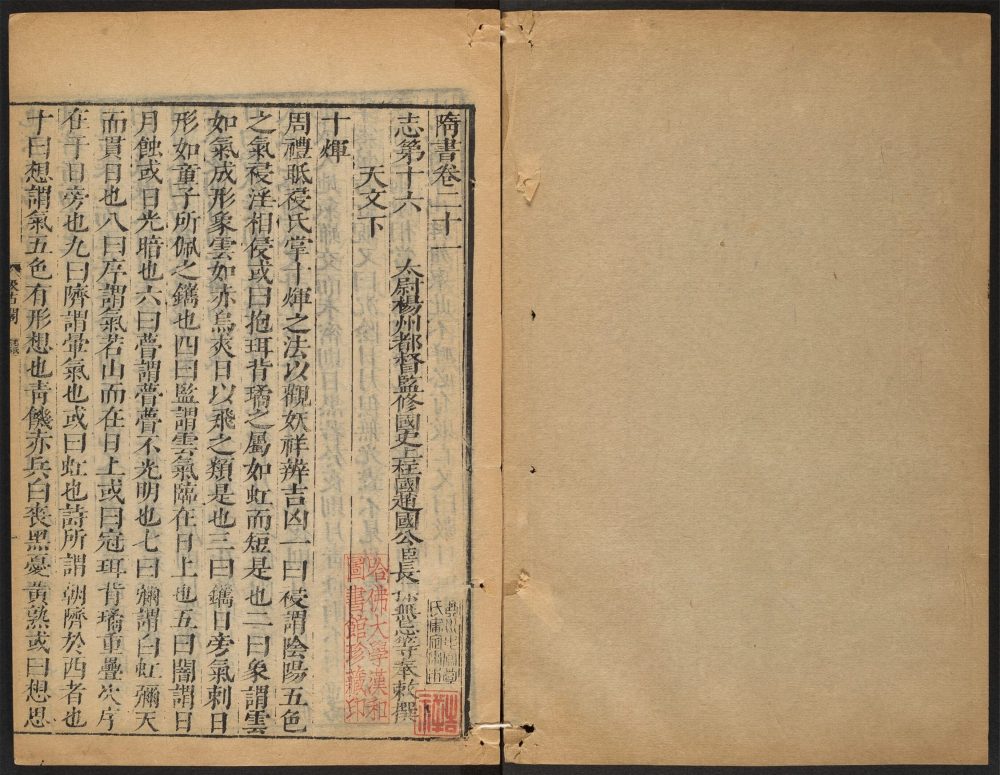 隋書卷二十一
志第十六
太尉楊州都督監修國史上柱國趙國公臣長孫無忌等奉敕撰
天文下
十煇
周禮眡祲氏掌十煇之法以觀妖祥辨吉凶一曰祲謂陰陽五色
之氣祲淫相侵或曰抱珥背璚之屬如虹而短是也二曰象謂雲
如氣成形象雲如赤烏夾日以飛之類是也三曰鑴日旁氣刺日
形如童子所佩之鑴也四曰監謂雲氣臨在日上也五曰闇謂日
月蝕或日光暗也六曰瞢謂瞢瞢不光明也七曰彌謂白虹彌天
而貫日也八曰序謂氣若山而在日上或曰冠珥背璚重疊次序
在于日旁也九曰隮謂暈氣也或曰虹也詩所謂朝隮於西者也
十曰想謂氣五色有形想也青饑赤兵白喪黑憂黃熟或曰想思
汲古閣
哈佛大學漢和
圖書館珍藏印